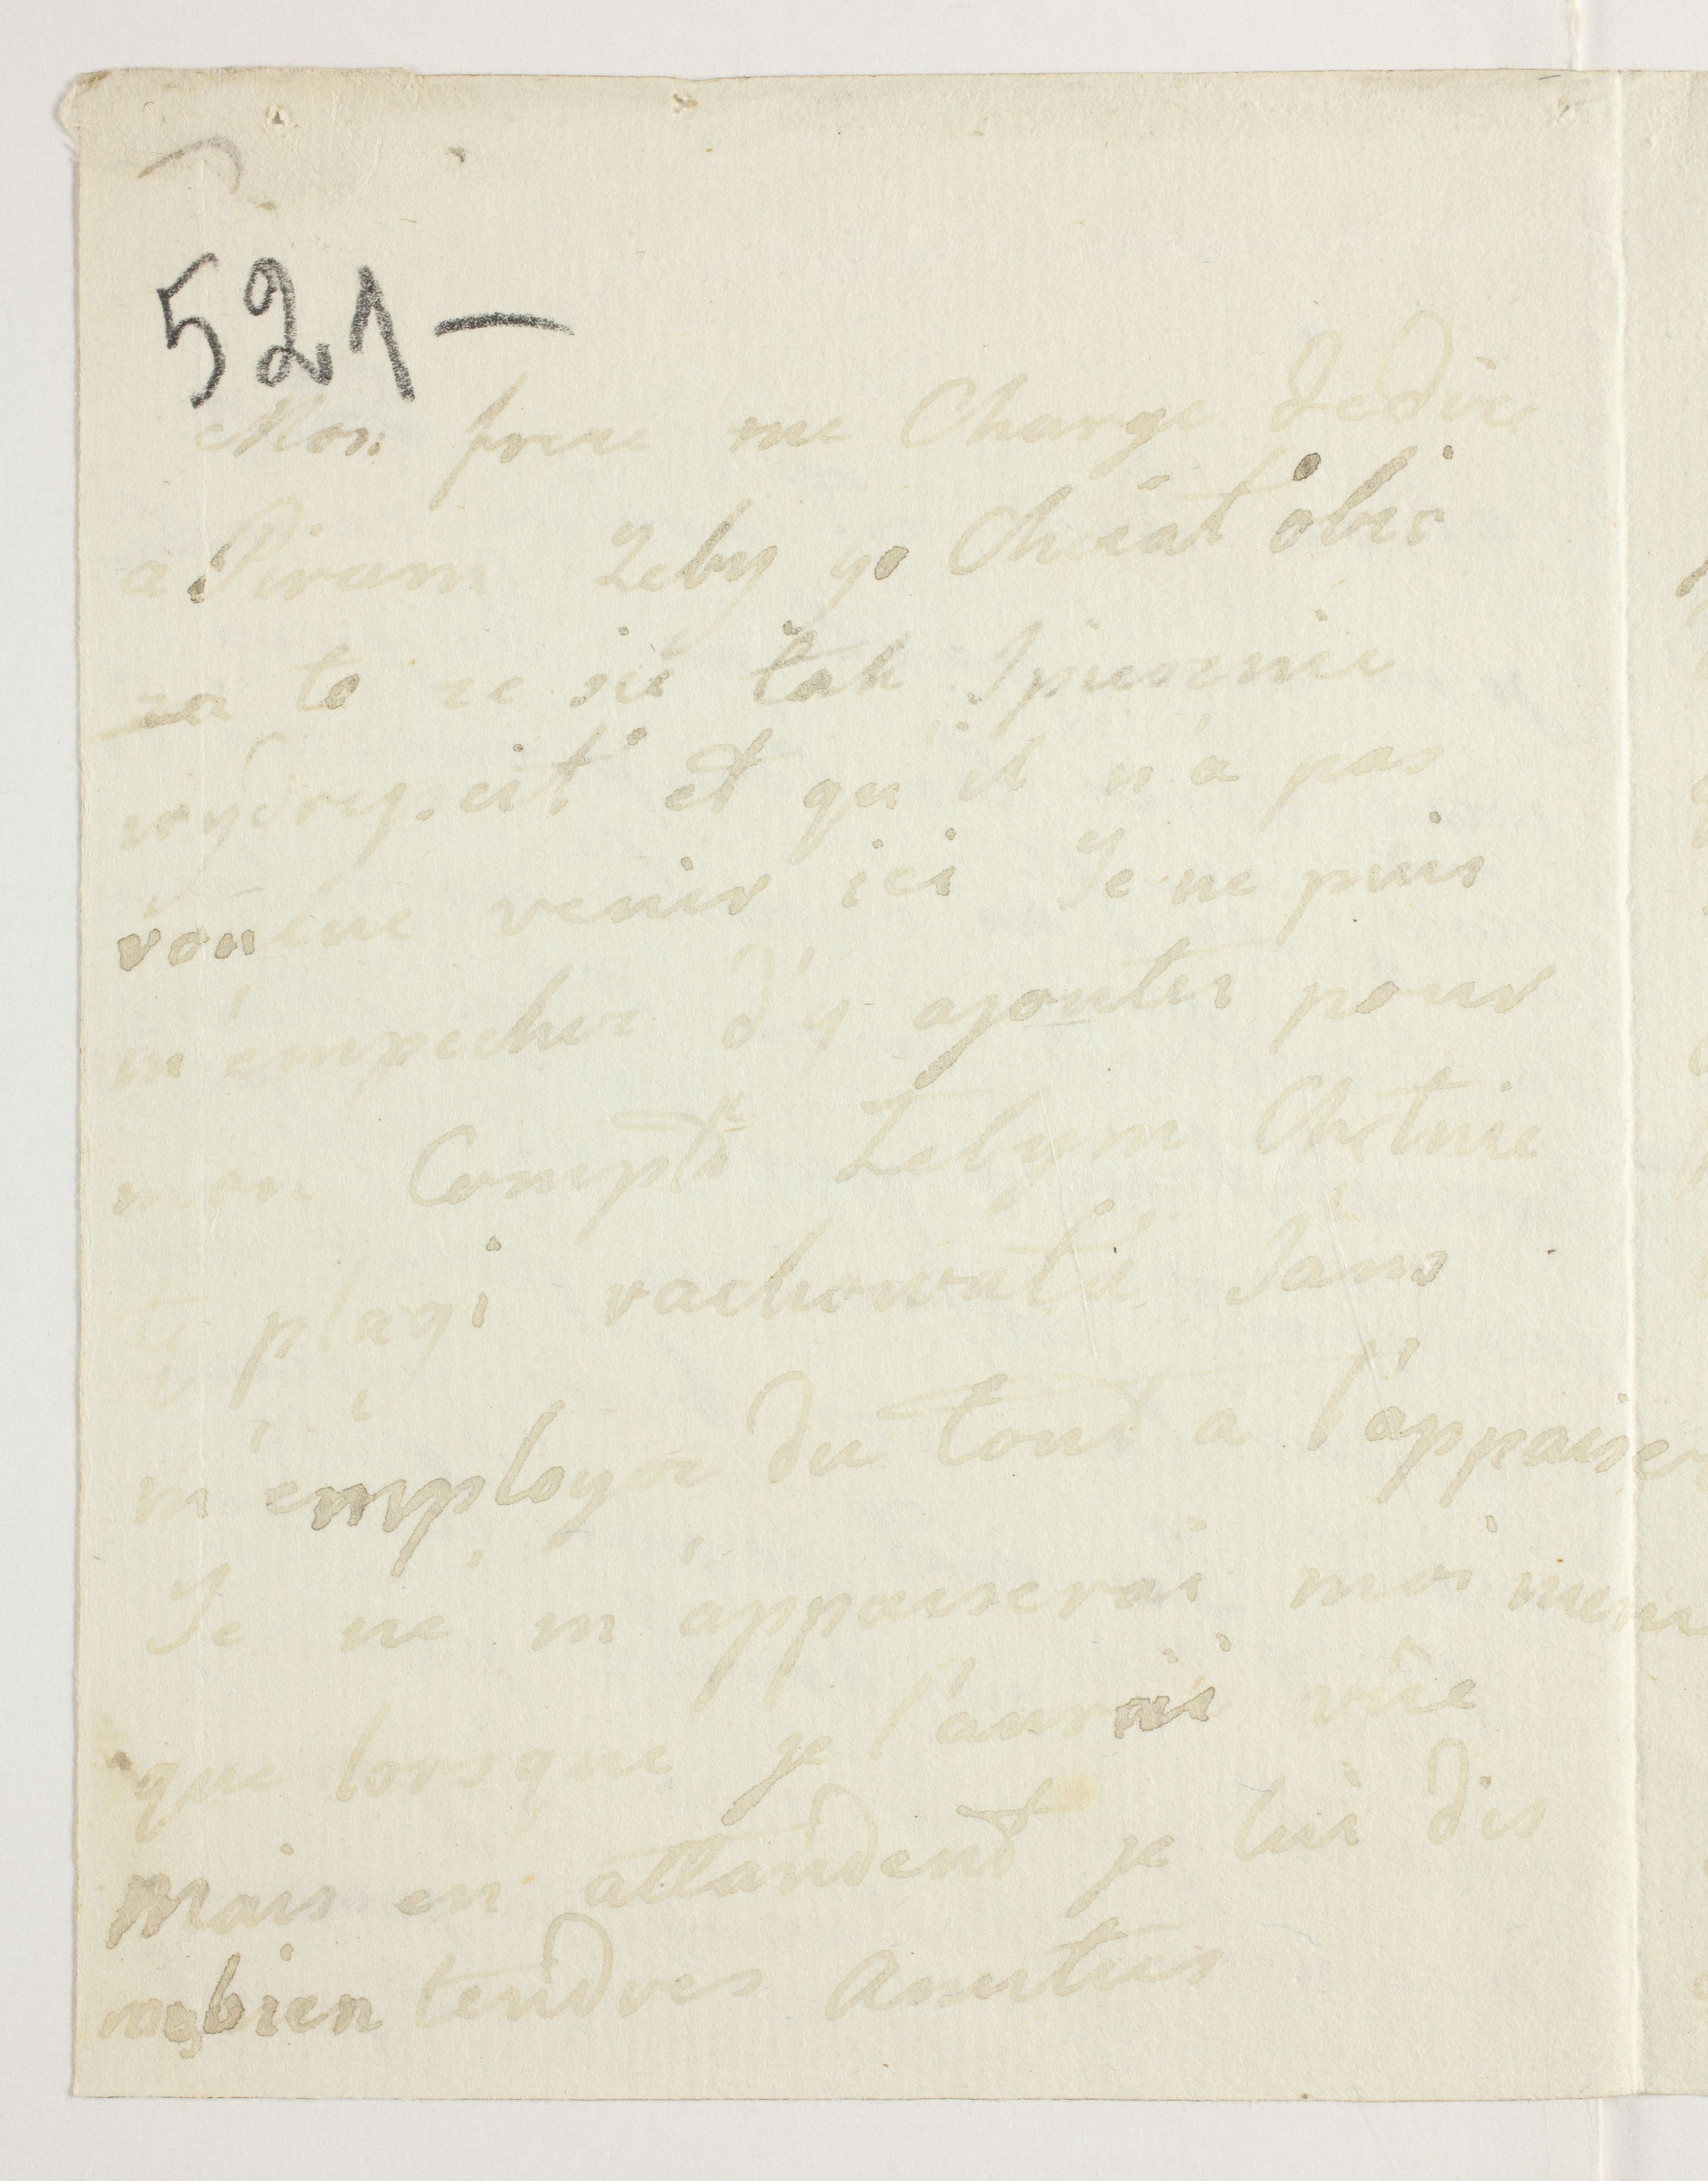 521 —
Mon frere me Charge de dire
a Piram Zeby go Chciat obis
za to ze sie tak Spiesznie
wydrepcit et qu'il n'a pas
voulue venir ici Je ne puis
m'empecher d'y ajouter pour
mon Compte Zebym Chetnie
te plagi rachowata Sans
m'employer du tout a l'appaiser
Je ne m'appaiserai moi meme
que lorsque je l'aurai vûe
Mais en attandent je lui dis
bien tendres